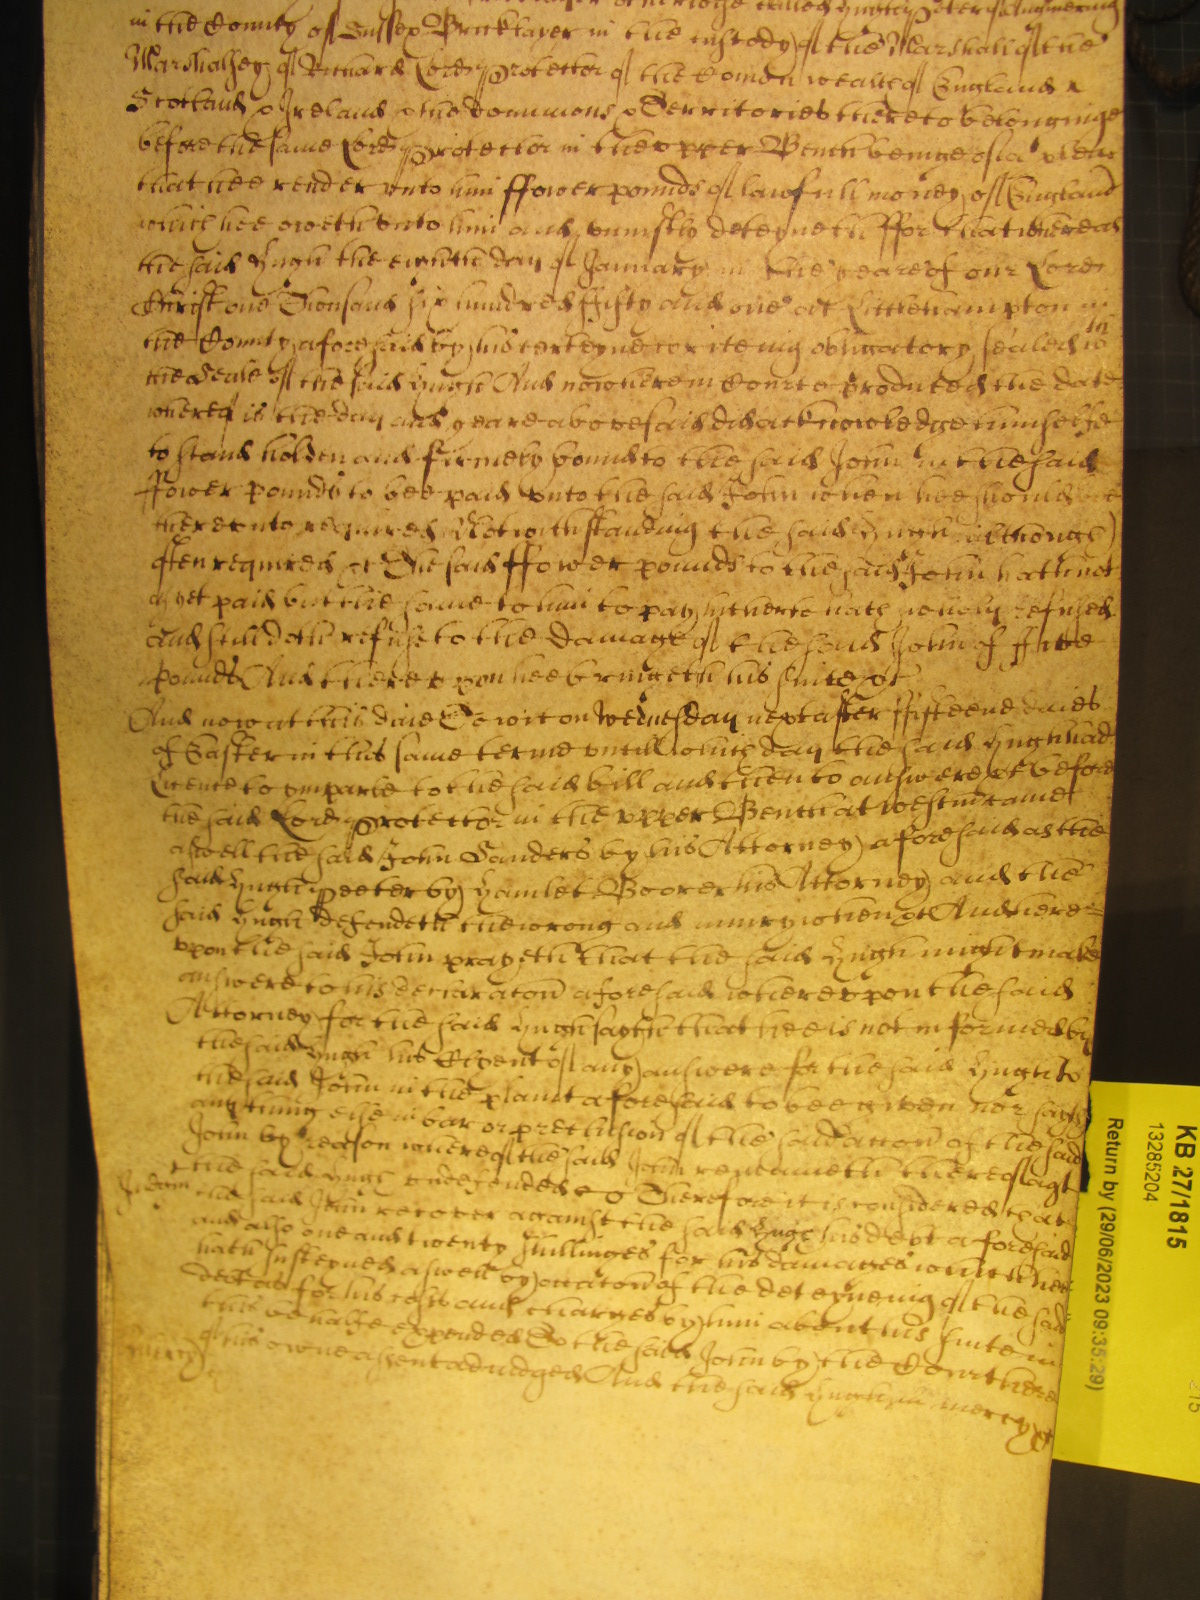 in the County of Sussex Bricklayer in the custody of the Marshall of the
Marshalsey of Richard Lord Protector of the Comon wealth of England
Scotland & Ireland & the dominions & Territories thereto belonginge
before the same Lord Protector in the upper Bench beinge of a plea
that hee render unto him ffower pounds of lawfull money of England
which hee oweth unto him and uniustly deteyneth ffor that whereas
the said Hugh the eighth day of January in the yeare of our Lord
Christ one Thousand six hundred ffifty and one at Littlehampton in
the County aforesaid by his certeyne writeing obligatory sealed wth
the Seale of the said Hugh And now here in Court produced the date
whereof is the day and yeare abovesaid did acknowledge himselfe
to stand holden and firmely bound to the said John in the said
ffower pounds to bee paid unto the said John when hee should bee
thereunto required Notwithstanding the said Hugh although
often required &c The said ffower pounds to the said John hath not
as yet paid but the same to him to pay hitherto hath wholy refused
and still doth refuse to the damage of the said John of ffive
pounds And thereupon hee bringeth his suite &c
And now at this daie To wit on Wednesday next after ffifteene daies
of Easter in this same terme untill which day the said Hugh had
Licence to imparle to the said bill and then to answere &c before
the said Lord Protector in the upper Bench at Westm came
aswell the said John Sanders by his Attorney aforesaid as the
said Hugh Peeter by Hamlet Boorer his Attorney and the
said Hugh defendeth the wrong and iniury when &c And there=
upon the said John prayeth that the said Hugh might make
answere to his declaracon aforesaid whereupon the said
Attorney for the said Hugh sayth that hee is not informed by
the said Hugh his Clyent of any answere for the said Hugh to
the said John in the plaint aforesaid to bee given nor sayth
any thing else in bar or preclusion of the said accon of the said
John by reason whereof the said John remaineth thereof agt
the said Hugh undefended &c Therefore it is considered that
Judgm the said John recover against the said Hugh his debt aforesaid
and also one and twenty shillinges for his damages which hee
hath susteyned aswell by occacon of the deteyneing of the said
debt as for his costs and charges by him about his suite in
this behalfe expended To the said John by the Court here
of his owne assent adiudged And the said Hugh in mercy &c
Mercy
KB 27/1815
13285204
Return by (29/06/2023 09:35:29)